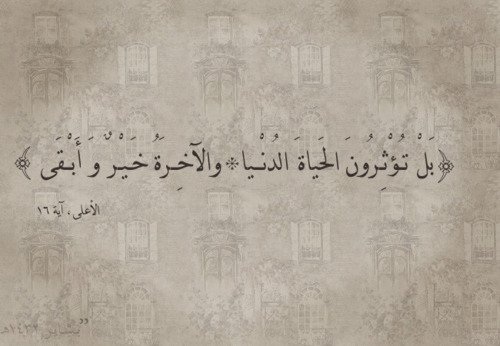 ﴿ بَلْ تُؤْثِرُونَ الحَياةَ الدُنْيا * والآخِرَةُ خَيْرٌ وَ أَبْقَى ﴾
الأعلى ، آية ١٦